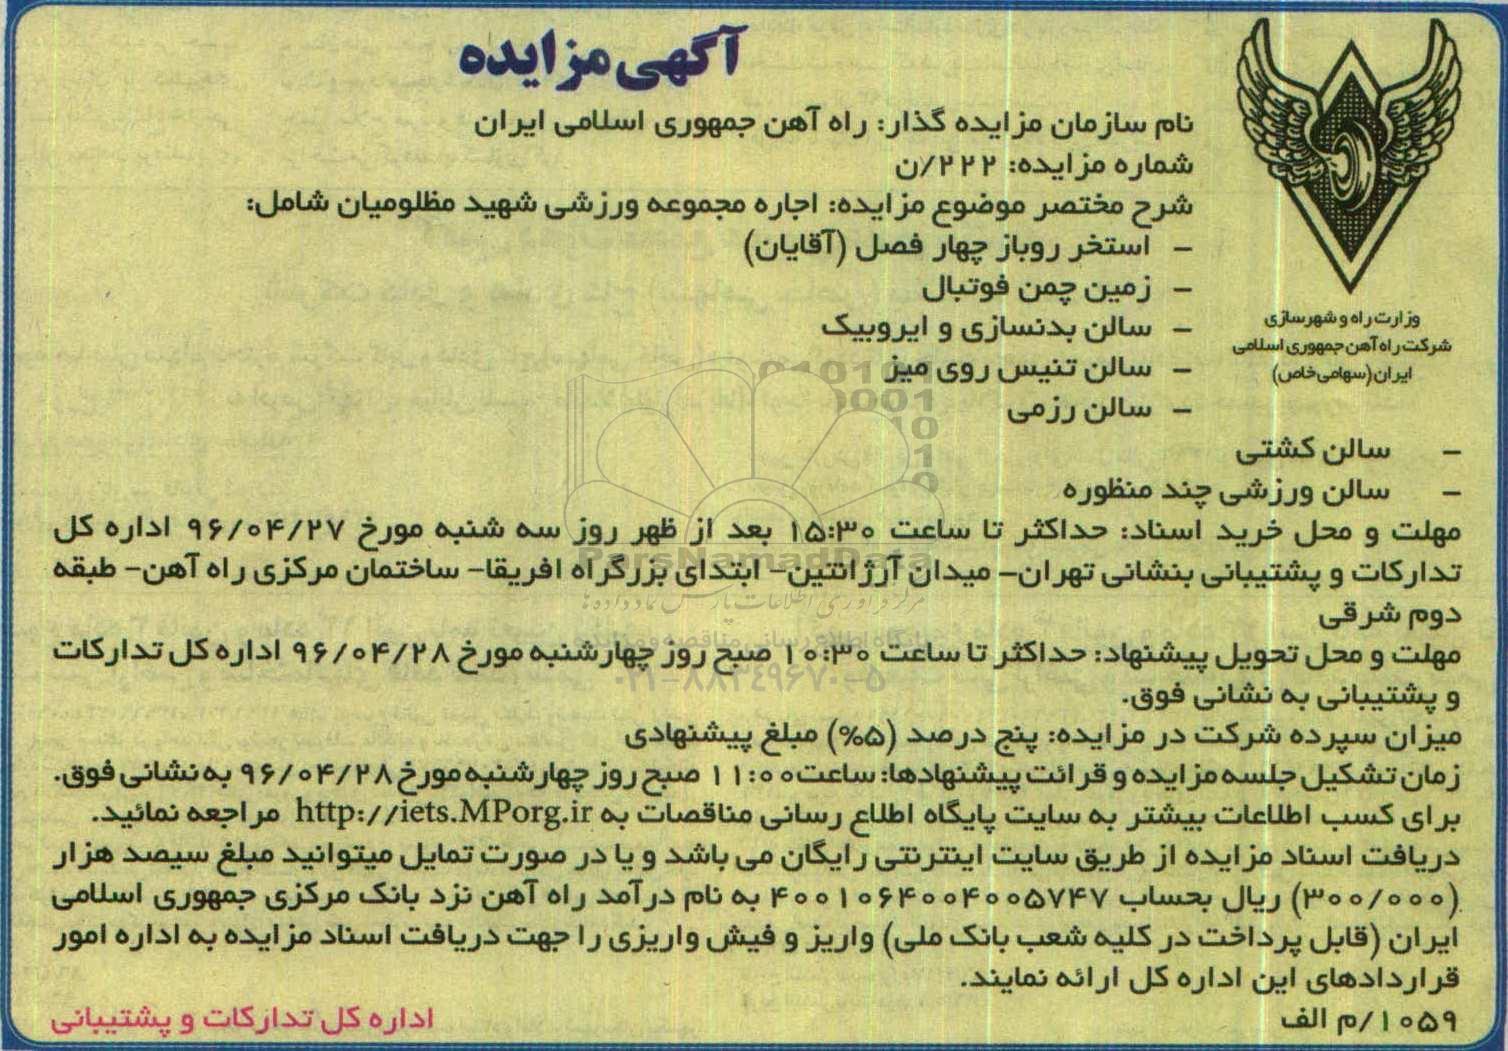 آگهی مزایده
نام سازمان مزایده گذار: راه آهن جمهوری اسلامی ایران
شماره مزایده: ۲۲۲/ن
شرح مختصر موضوع مزایده: اجاره مجموعه ورزشی شهید مظلومیان شامل:
- استخر روباز چهار فصل (آقایان)
- زمین چمن فوتبال
- سالن بدنسازی و ایروبیک
- سالن تنیس روی میز
- سالن رزمی
وزارت راه و شهرسازی
شرکت راه آهن جمهوری اسلامی
ایران (سهامی خاص)
- سالن کشتی
- سالن ورزشی چند منظوره
مهلت و محل خرید اسناد: حداکثر تا ساعت ۱۵:۳۰ بعد از ظهر روز سه شنبه مورخ ۹۶/۰۴/۲۷ اداره کل
تدارکات و پشتیبانی بنشانی تهران- میدان آرژانتین- ابتدای بزرگراه افریقا- ساختمان مرکزی راه آهن- طبقه
دوم شرقی
مهلت و محل تحویل پیشنهاد: حداکثر تا ساعت ۱۰:۳۰ صبح روز چهارشنبه مورخ ۹۶/۰۴/۲۸ اداره کل تدارکات
و پشتیبانی به نشانی فوق.
میزان سپرده شرکت در مزایده: پنج درصد (۵%) مبلغ پیشنهادی
زمان تشکیل جلسه مزایده و قرائت پیشنهادها: ساعت ۱۱:۰۰ صبح روز چهارشنبه مورخ ۹۶/۰۴/۲۸ به نشانی فوق.
برای کسب اطلاعات بیشتر به سایت پایگاه اطلاع رسانی مناقصات به http://iets.MPorg.ir مراجعه نمائید.
دریافت اسناد مزایده از طریق سایت اینترنتی رایگان می باشد و یا در صورت تمایل میتوانید مبلغ سیصد هزار
(۳۰۰/۰۰۰) ریال بحساب ۴۰۰۱۰۶۴۰۰۴۰۰۵۷۴۷ به نام درآمد راه آهن نزد بانک مرکزی جمهوری اسلامی
ایران (قابل پرداخت در کلیه شعب بانک ملی) واریز و فیش واریزی را جهت دریافت اسناد مزایده به اداره امور
قراردادهای این اداره کل ارائه نمایند.
۱۰۵۹/م الف
اداره کل تدارکات و پشتیبانی
ParsNamadData
مرکز فرآوری اطلاعات پارس نماد داده ها
پایگاه اطلاع رسانی مناقصه و مزایده
۰۲۱-۸۸۳۴۹۶۷۰-۵